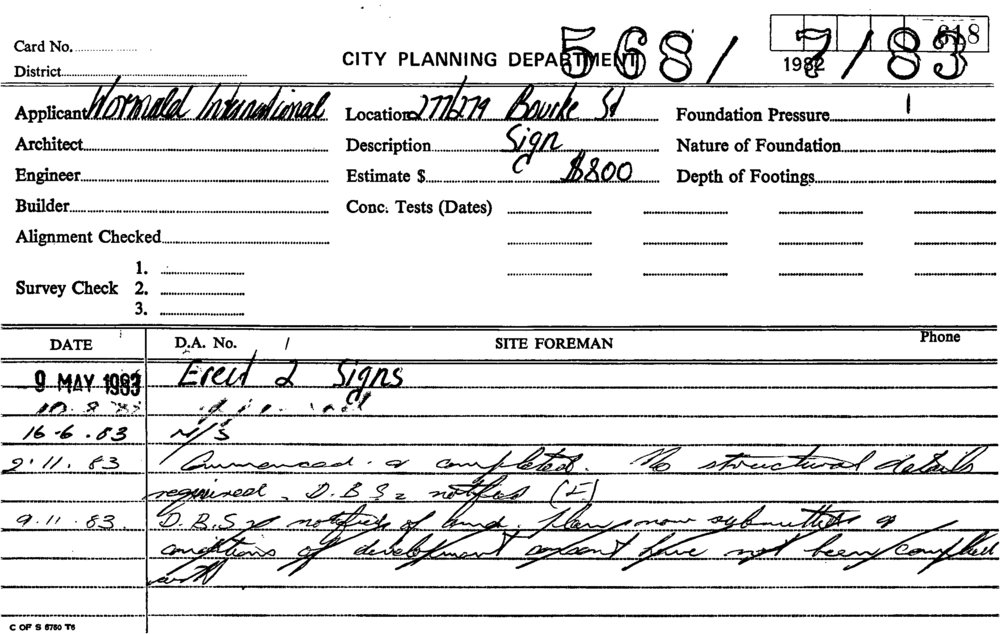 568/7/83
818
Card No.
CITY PLANNING DEPARTMENT
1982
District
Applicant Wormald International Location 277/279 Bourke St Foundation Pressure
Architect Description Sign Nature of Foundation
Engineer Estimate $ $800 Depth of Footings
Builder Conc. Tests (Dates)
Alignment Checked
1.
Survey Check 2.
3.
DATE D.A. No. / SITE FOREMAN Phone
9 MAY 1983 Erect 2 Signs
16-6.83 N/S
2.11.83 Commenced & completed. No structural details
required. D.B.S. notified (I)
9.11.83. D.B.S. notified of plans now submitted &
conditions of development consent have not been complied
with
C OF S 5750 T6